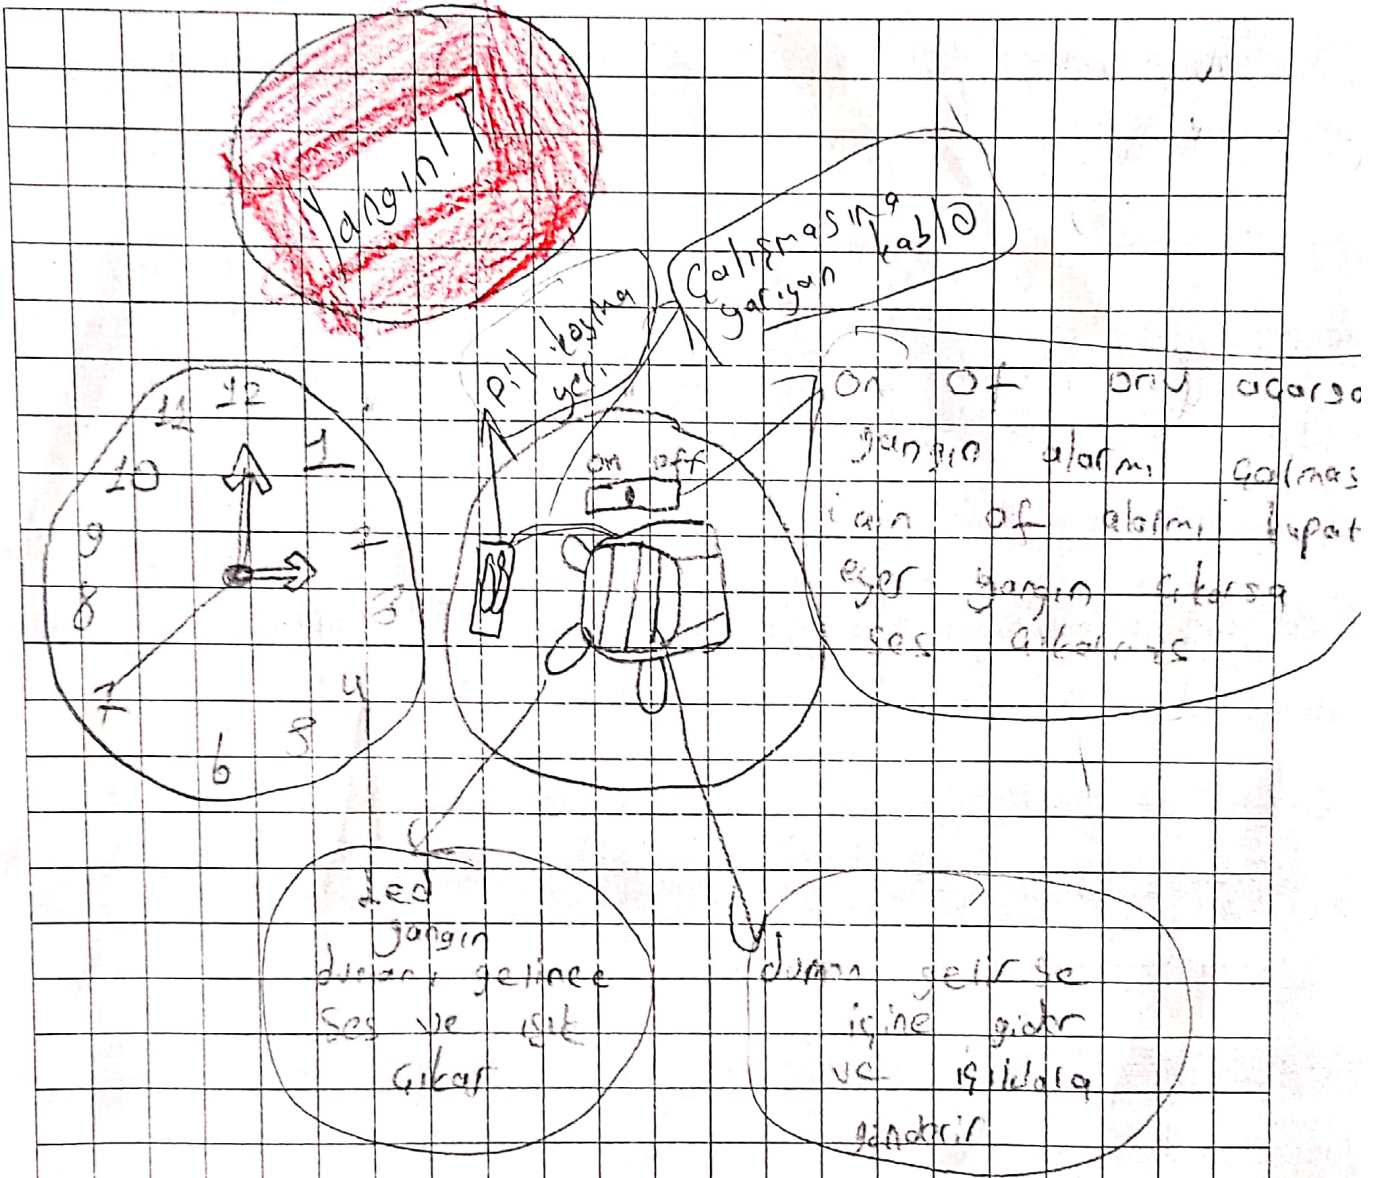 Yangın!!
Çalışmasına
yarıyan kablo
Pil koyma
yeri
12
11
1
10
2
9
8
3
7
4
5
6
on off
On Of onu açarsa
yangın alarmı çalmas
için of alarmı kapat
eğer yangın çıkarsa
ses
Led
yangın
dumanı gelince
Ses ve ışık
çıkar
duman gelirse
içine gider
ve ışıldala
gönderir